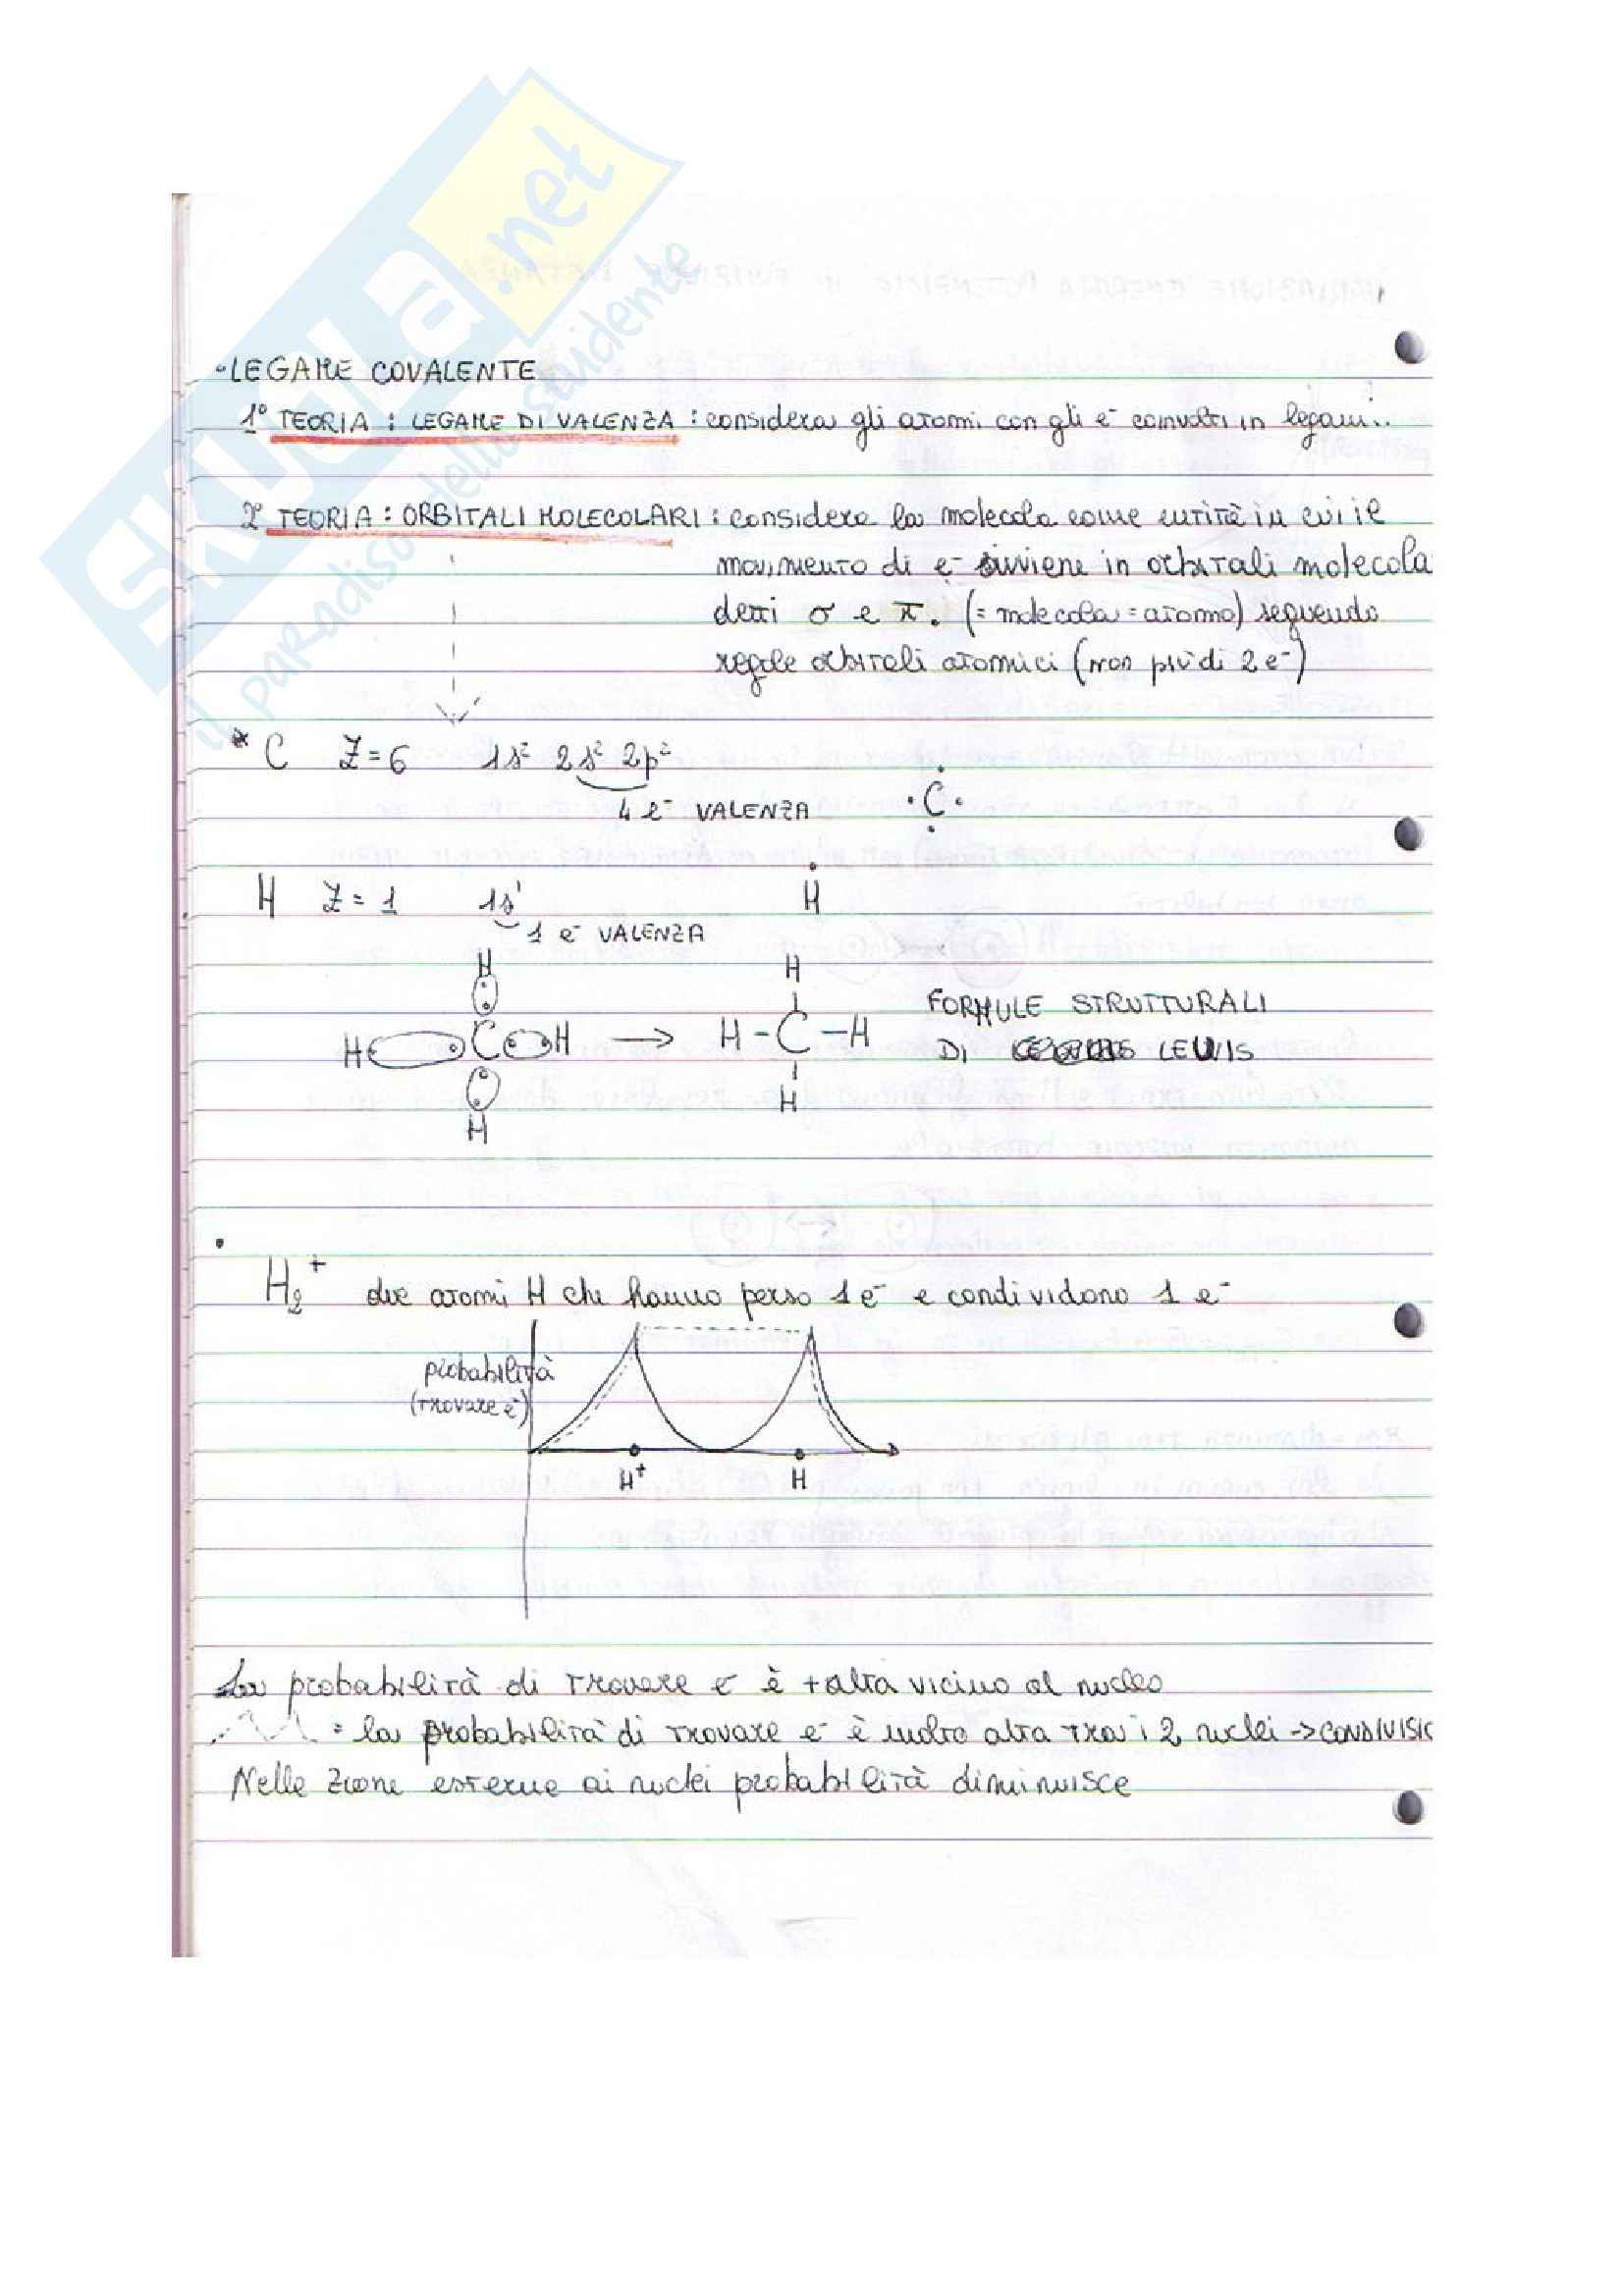 SKUOLA.net
il paradiso dello studente
-LEGAME COVALENTE
1° TEORIA : LEGAME DI VALENZA : considera gli atomi con gli e⁻ coinvolti in legami..
2° TEORIA : ORBITALI MOLECOLARI : considera la molecola come entità in cui il
movimento di e⁻ avviene in orbitali molecola
detti σ e π. (= molecola = atomo) seguendo
regole orbitali atomici (non più di 2 e⁻)
* C Z=6 1s² 2s² 2p²
4 e⁻ VALENZA
·C·
H Z=1 1s¹
H
1 e⁻ VALENZA
H H
H C H → H-C-H
H H
FORMULE STRUTTURALI
DI LEWIS
H₂⁺ due atomi H che hanno perso 1 e⁻ e condividono 1 e⁻
probabilità
(trovare e⁻)
H⁺ H
La probabilità di trovare e⁻ è + alta vicino al nucleo
= la probabilità di trovare e⁻ è molto alta tra i 2 nuclei -> CONDIVISIO
Nelle zone esterne ai nuclei probabilità diminuisce